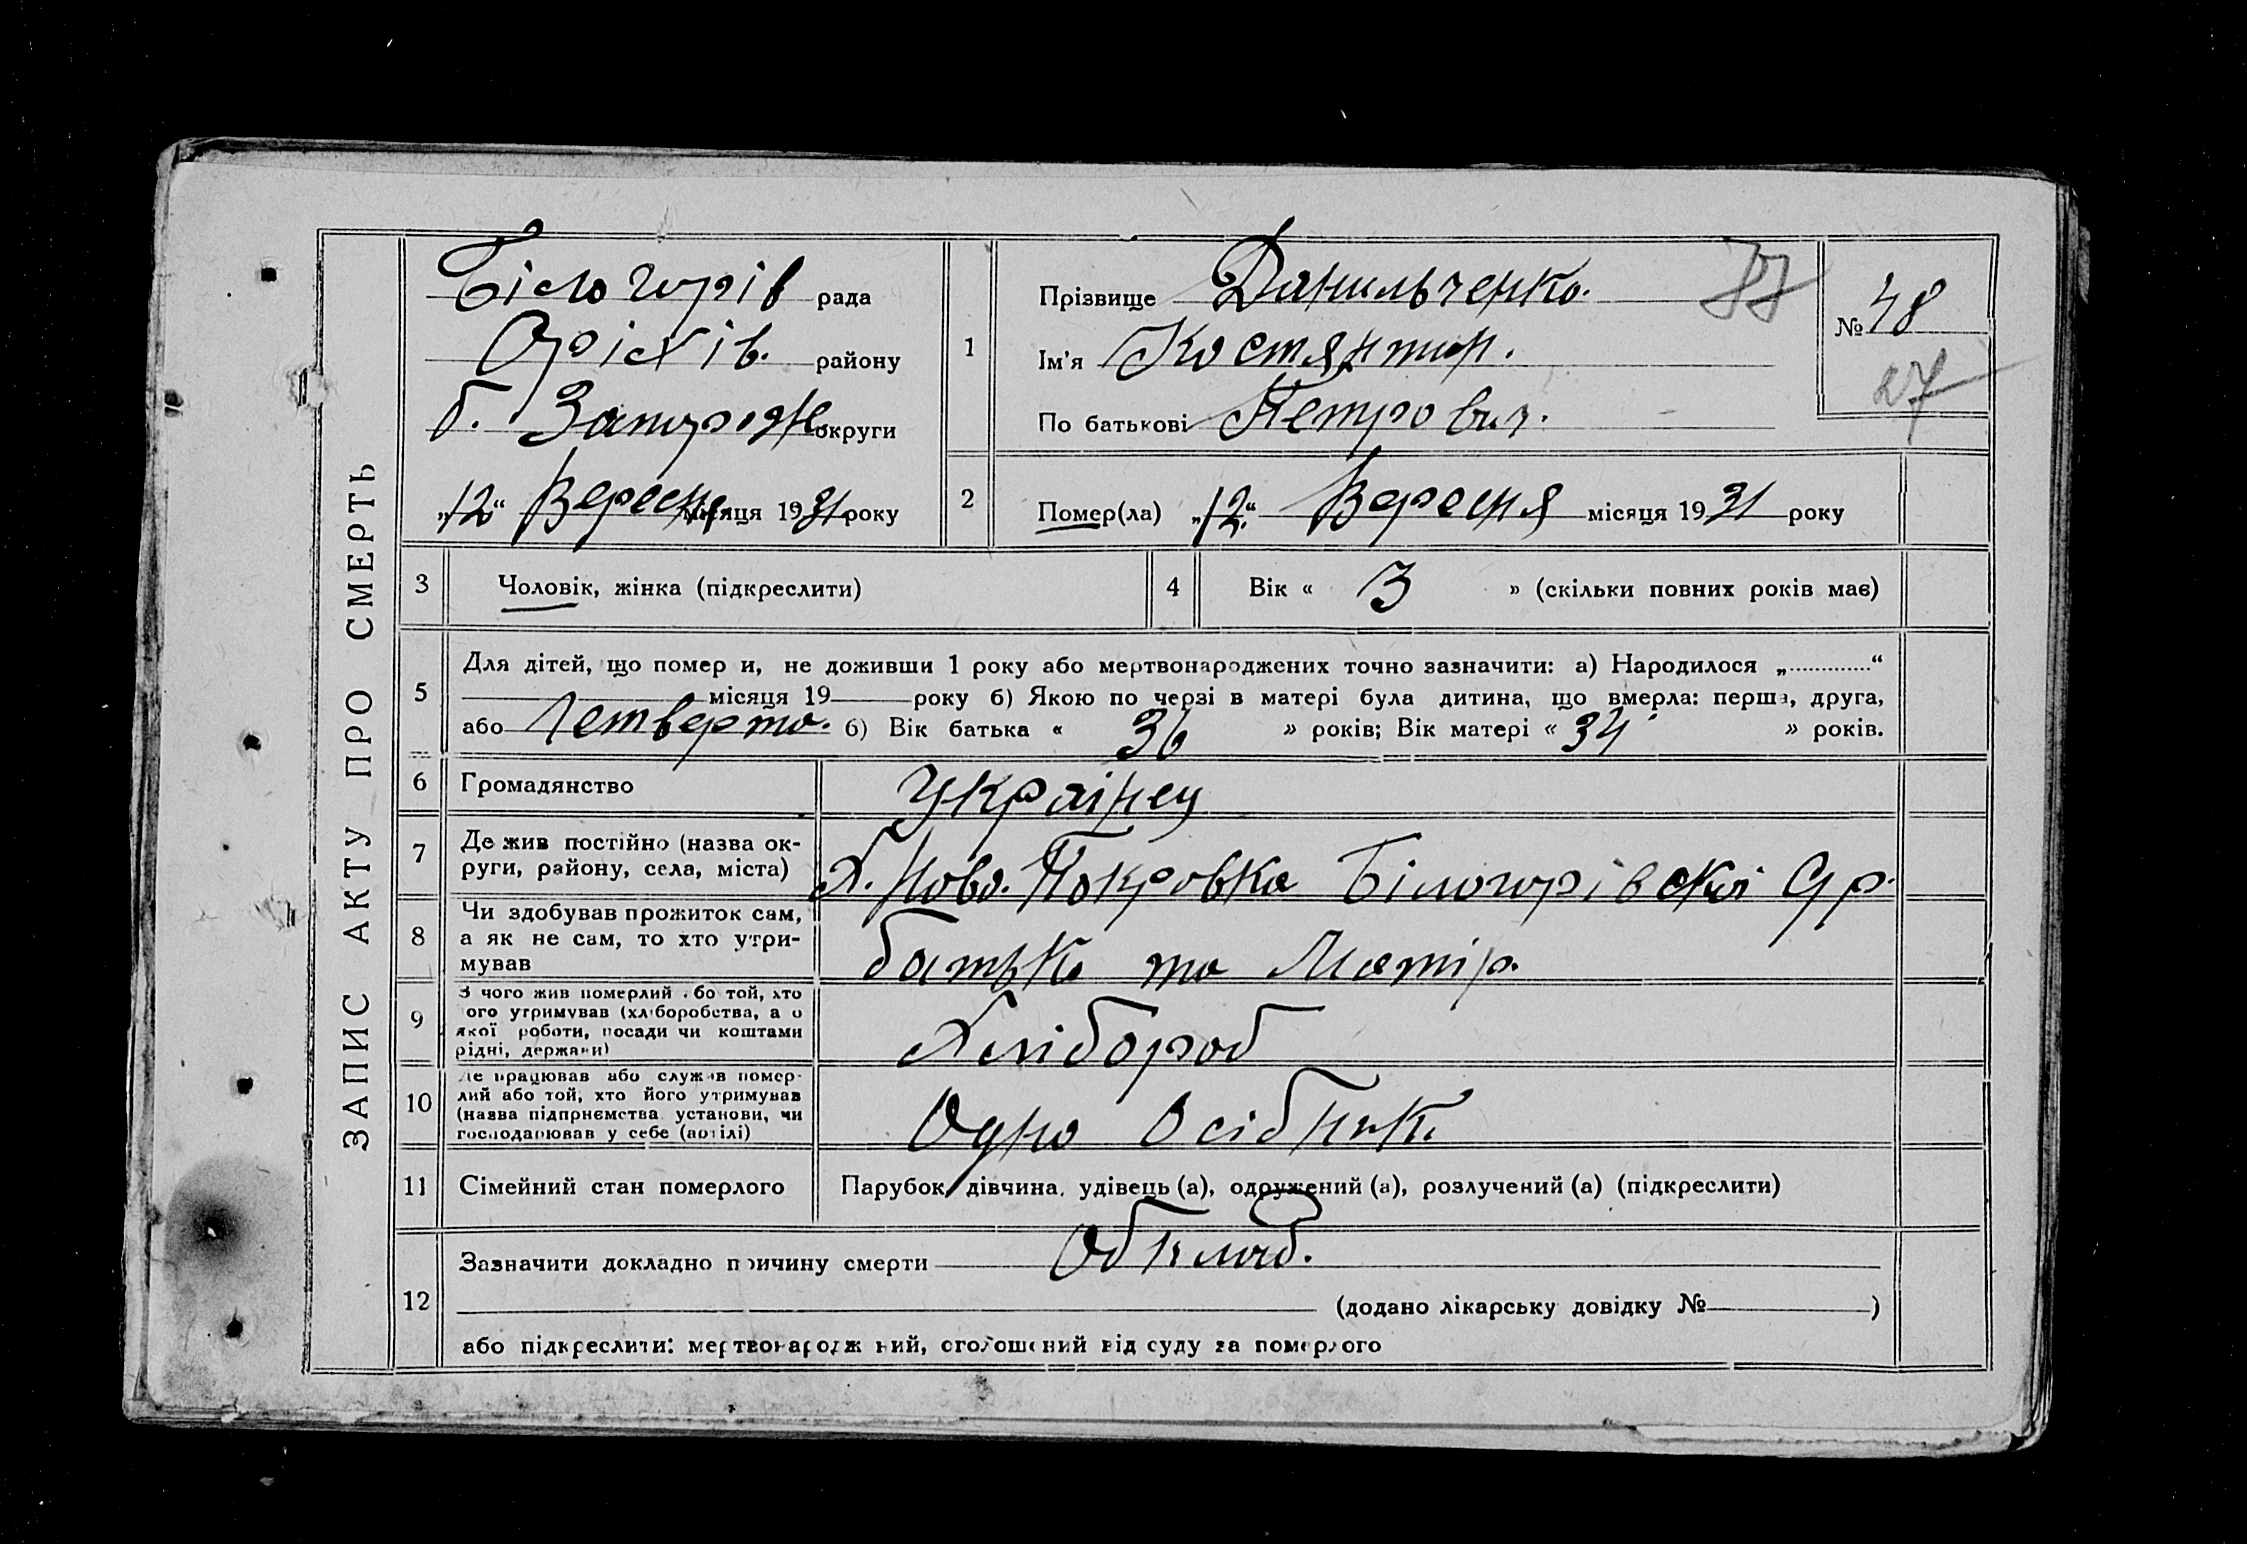 ЗАПИС АКТУ ПРО СМЕРТЬ
Білогорів рада
Оріхів. району
б. Запоріж округи
„12“ Вересня місяця 1931 року
1
Прізвище Данильченко.
Ім'я Костянтин.
По батькові Петрович.
№ 48
27
2
Помер(ла) „12“ Вересня місяця 1931 року
3
Чоловік, жінка (підкреслити)
4
Вік « 3 » (скільки повних років має)
5
Для дітей, що помер и, не доживши 1 року або мертвонароджених точно зазначити: а) Народилося „............“
місяця 19 року б) Якою по черзі в матері була дитина, що вмерла: перша, друга,
або Четверта. б) Вік батька « 36 » років; Вік матері « 34 » років.
6
Громадянство
Українец
7
Де жив постійно (назва ок-
руги, району, села, міста)
Х. Ново-Покровка Білогорівскої
8
Чи здобував прожиток сам,
а як не сам, то хто утри-
мував
батько та Матір.
9
З чого жив померлий або той, хто
ого утримував (хліборобства, а о
якої роботи, посади чи коштами
рідні, держави)
Хлібороб
10
Де працював або служив помер-
лий або той, хто його утримував
(назва підприємства, установи, чи
господарював у себе (артілі)
Одно Осібник.
11
Сімейний стан померлого
Парубок, дівчина, удівець (а), одружений (а), розлучений (а) (підкреслити)
12
Зазначити докладно причину смерти
(додано лікарську довідку № )
або підкреслити: мертвонародж ний, оголошений від суду за померлого